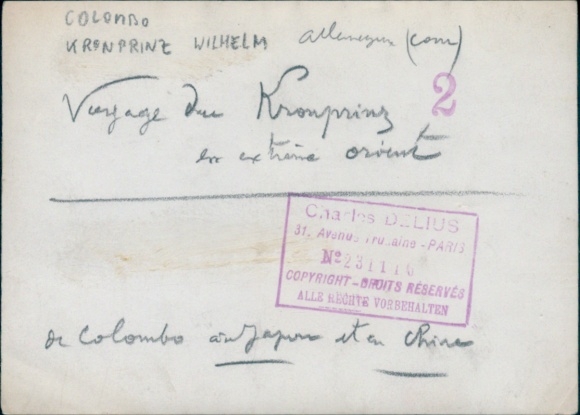 COLOMBO
KRONPRINZ WILHELM Allemagne (cour)
Voyage du Kronprinz
2
en extrême orient
Charles DELIUS
31, Avenue Trudaine - PARIS
COPYRIGHT - DROITS RÉSERVÉS
ALLE RECHTE VORBEHALTEN
de Colombo au Japon et en Chine